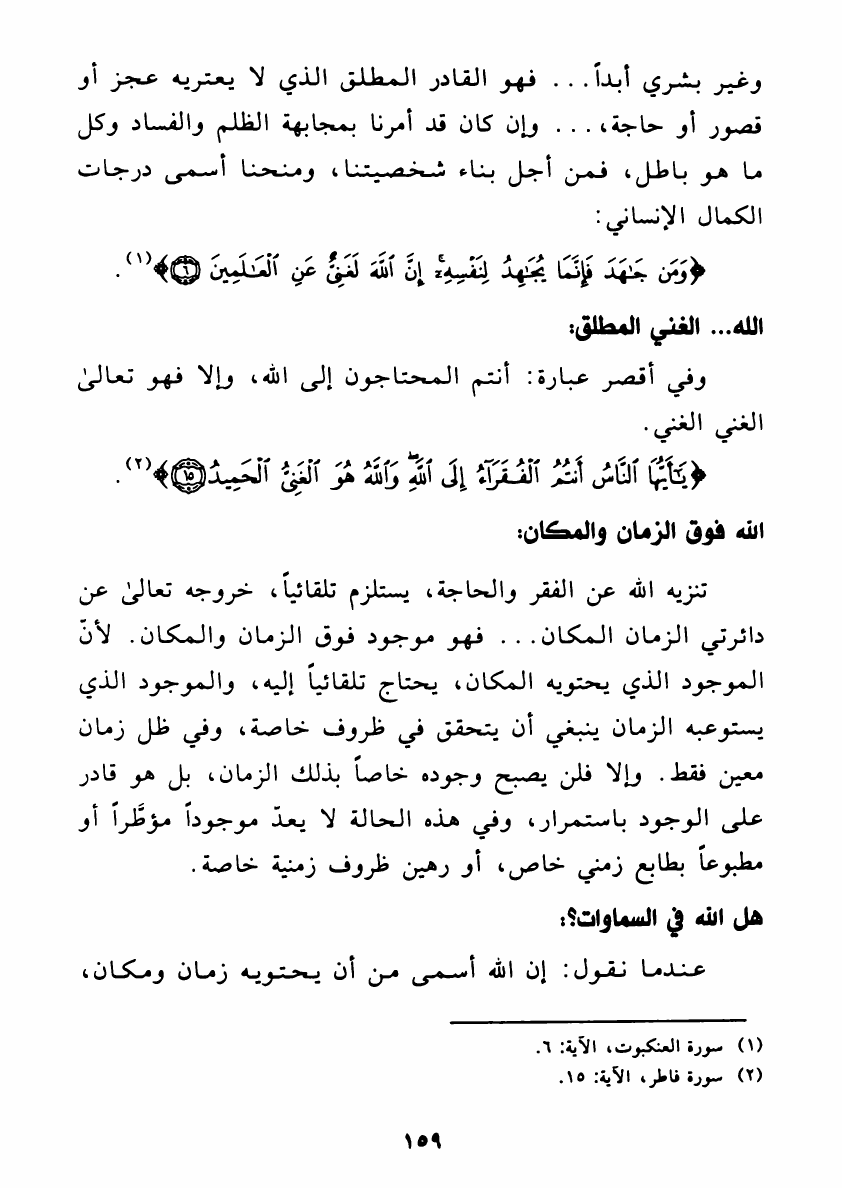 وغير بشري أبداً... فهو القادر المطلق الذي لا يعتريه عجز أو
قصور أو حاجة،... وإن كان قد أمرنا بمجابهة الظلم والفساد وكل
ما هو باطل، فمن أجل بناء شخصيتنا، ومنحنا أسمى درجات
الكمال الإنساني:
﴿وَمَن جَٰهَدَ فَإِنَّمَا يُجَٰهِدُ لِنَفْسِهِۦٓ ۚ إِنَّ ٱللَّهَ لَغَنِىٌّ عَنِ ٱلْعَٰلَمِينَ ٦﴾(١).
الله... الغني المطلق:
وفي أقصر عبارة: أنتم المحتاجون إلى الله، وإلا فهو تعالىٰ
الغني الغني.
﴿يَٰٓأَيُّهَا ٱلنَّاسُ أَنتُمُ ٱلْفُقَرَآءُ إِلَى ٱللَّهِ ۖ وَٱللَّهُ هُوَ ٱلْغَنِىُّ ٱلْحَمِيدُ ١٥﴾(٢).
الله فوق الزمان والمكان:
تنزيه الله عن الفقر والحاجة، يستلزم تلقائياً، خروجه تعالىٰ عن
دائرتي الزمان المكان... فهو موجود فوق الزمان والمكان. لأنّ
الموجود الذي يحتويه المكان، يحتاج تلقائياً إليه، والموجود الذي
يستوعبه الزمان ينبغي أن يتحقق في ظروف خاصة، وفي ظل زمان
معين فقط. وإلا فلن يصبح وجوده خاصاً بذلك الزمان، بل هو قادر
على الوجود باستمرار، وفي هذه الحالة لا يعدّ موجوداً مؤطَّراً أو
مطبوعاً بطابع زمني خاص، أو رهين ظروف زمنية خاصة.
هل الله في السماوات؟:
عندما نقول: إن الله أسمى من أن يحتويه زمان ومكان،
(١) سورة العنكبوت، الآية: ٦.
(٢) سورة فاطر، الآية: ١٥.
١٥٩